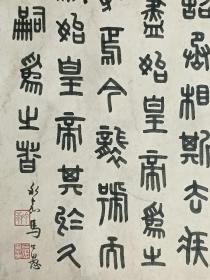 詔丞相斯去疾
盡始皇帝為之
焉今襲號而
稱始皇帝其於久
嗣為之者
永嘉馬公愚